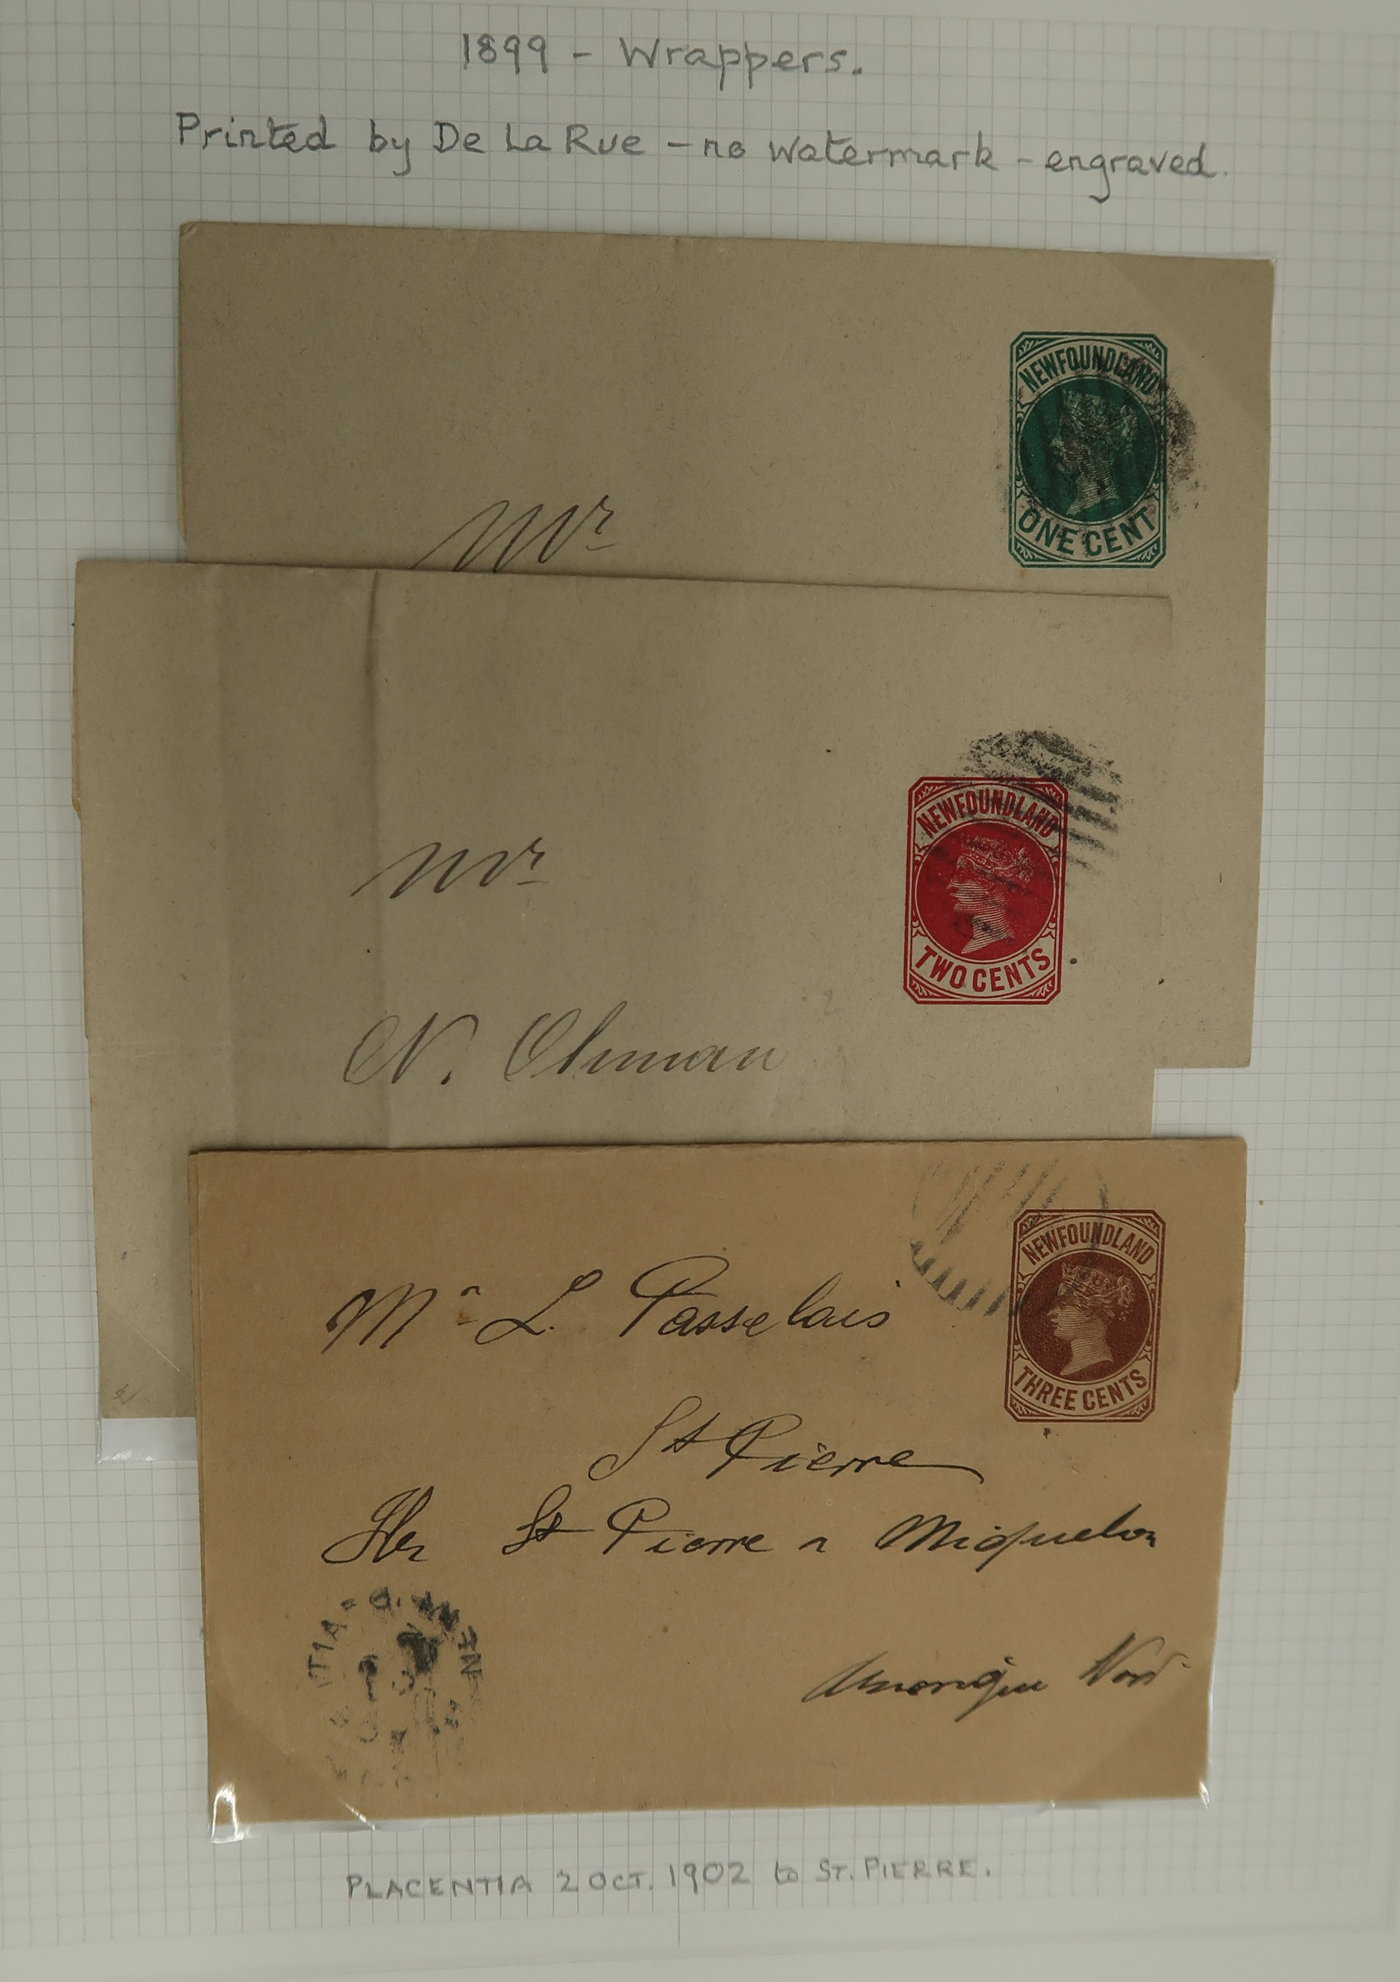 1899 - Wrappers.
Printed by De La Rue - no watermark - engraved.
NEWFOUNDLAND
ONE CENT
Mr
NEWFOUNDLAND
TWO CENTS
Mr
N. Ohman
NEWFOUNDLAND
THREE CENTS
Mr L. Passelais
St Pierre
Iles St Pierre & Miquelon
Amerique Nord
PLACENTIA 2 OCT. 1902 to ST. PIERRE.